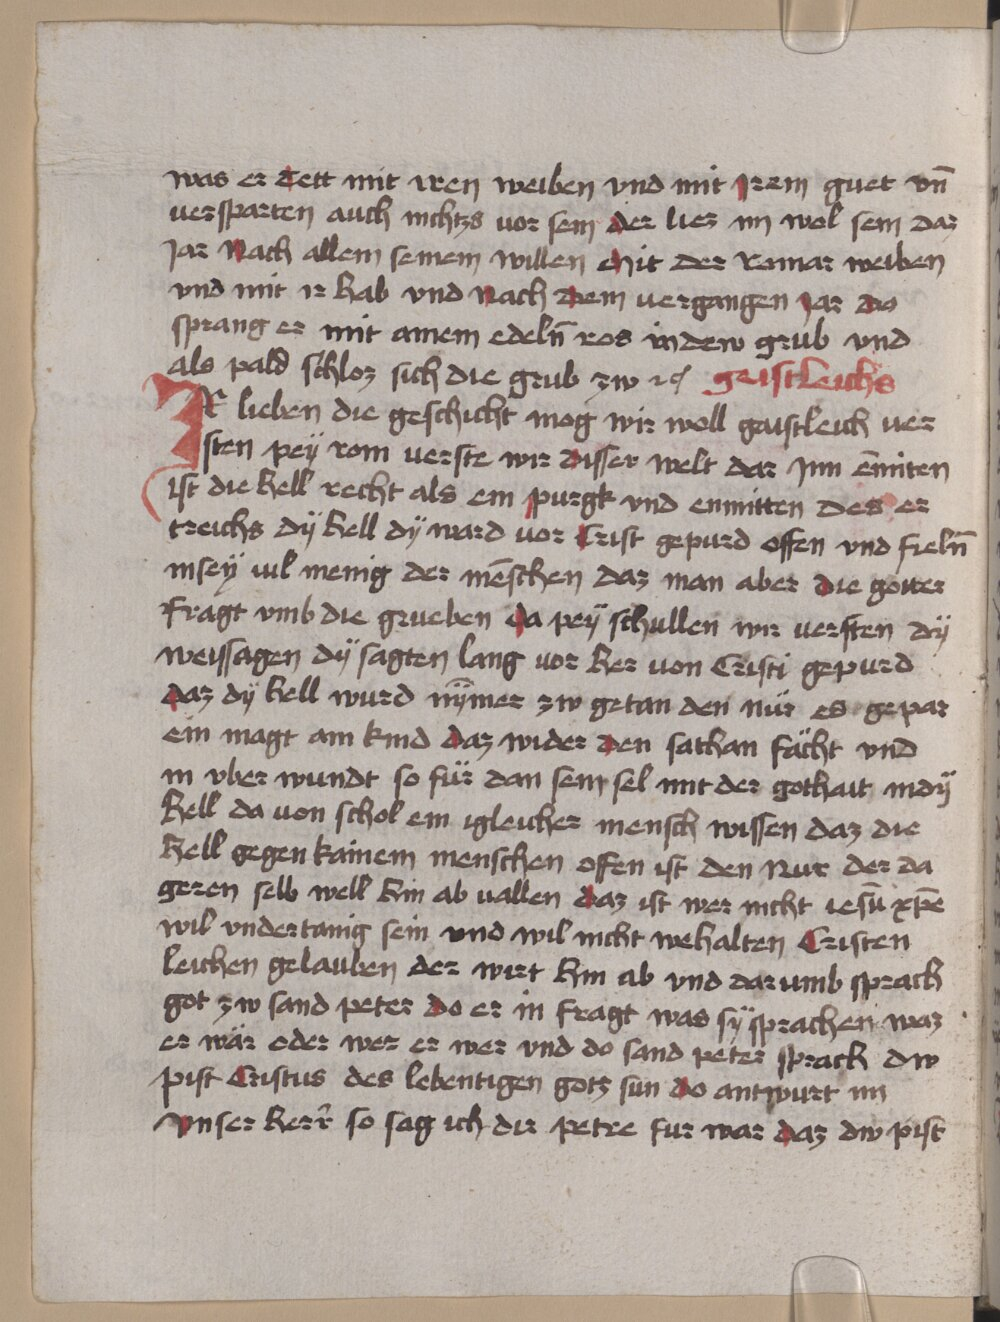 was er Tett mit iren weiben vnd mit Jrem guet vn̄
versparten auch nichtzs vor sein der liez im wol sein daz
Jar Nach allem seinem willen Mit der romar weiben
vnd mit ir hab vnd Nach dem vergangen Jar do
sprang er mit ainem edeln̄ ros in dew grub vnd
als pald schloz sich die grub zw geistleichs
Ir lieben die geschicht mog wir woll gaistleich ver
sten peÿ rom verste wir disser welt dar Jnn en̄miten
ist die hell recht als ein purgk vnd enmitten des er
treichs dÿ hell dÿ ward vor Crist gepurd offen vnd fieln̄
in seÿ vil menig der mēschen daz man aber die gotter
fragt vmb die grueben da peÿ schullen wir versten dÿ
weissagen dÿ sagten lang vor her von Cristi gepurd
daz dÿ hell wurd nȳmer zw getan den nür es gepar
ein magt ain kind daz wider den sathan fächt vnd
in vber wundt so für dan sein sel mit der gothait in dÿ
hell da von schol ein igleicher mensch wissen daz die
hell gegen kainem menschen offen ist den Nur der da
geren selb well hin ab vallen daz ist wer nicht iesū xp̄e
wil vndertanig sein vnd wil nicht wehalten Cristen
leichen gelauben der wirt hin ab vnd darumb sprach
got zw sand peter do er in fragt was sÿ sprachen waz
er wär oder wer er wer vnd do sand peter sprach dw
pist Cristus des lebentigen gotz sun do antwurt im
Vnser herr̄ so sag ich dir petre fur war daz dw pist